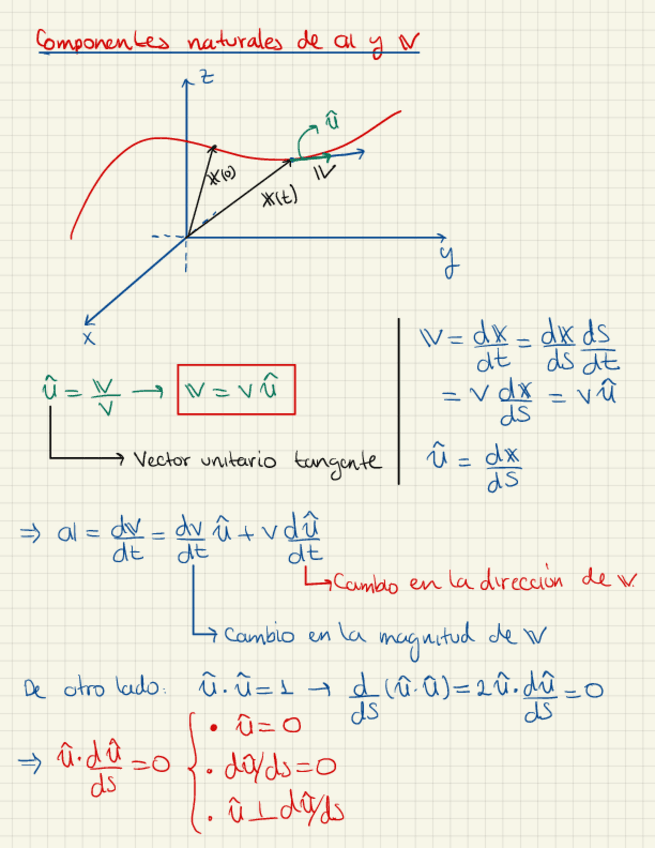 Componentes naturales de 𝕒 y 𝕍
z
û
𝕏(0)
𝕏(t)
𝕍
y
x
û = 𝕍/v → 𝕍 = v û
Vector unitario tangente
𝕍 = d𝕏/dt = d𝕏/ds ds/dt
= v d𝕏/ds = v û
û = d𝕏/ds
⇒ 𝕒 = d𝕍/dt = dv/dt û + v dû/dt
Cambio en la dirección de 𝕍.
Cambio en la magnitud de 𝕍
De otro lado: û · û = 1 → d/ds (û · û) = 2û · dû/ds = 0
⇒ û · dû/ds = 0 {
• û = 0
• dû/ds = 0
• û ⊥ dû/ds